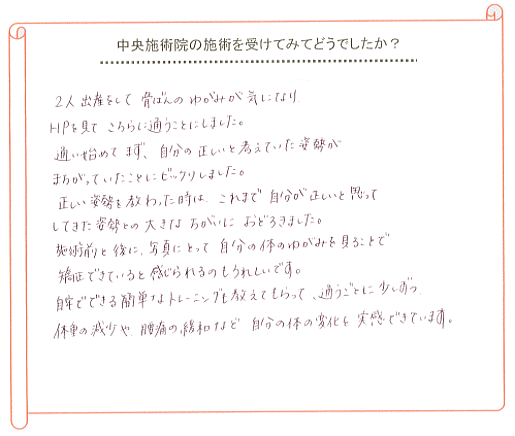 中央施術院の施術を受けてみてどうでしたか？
2人出産をして 骨ばんのゆがみが気になり
HPを見て こちらに通うことにしました。
通い始めて まず、自分の正しいと考えていた姿勢が
まちがっていたことにビックリしました。
正しい姿勢を教わった時は、これまで自分が正しいと思って
してきた姿勢との大きなちがいに おどろきました。
施術前と後に、写真にとって 自分の体のゆがみを見ることで
矯正できていると感じられるのもうれしいです。
自宅でできる簡単なトレーニングも教えてもらって、通うごとに少しずつ
体重の減少や、腰痛の緩和など 自分の体の変化を実感できています。